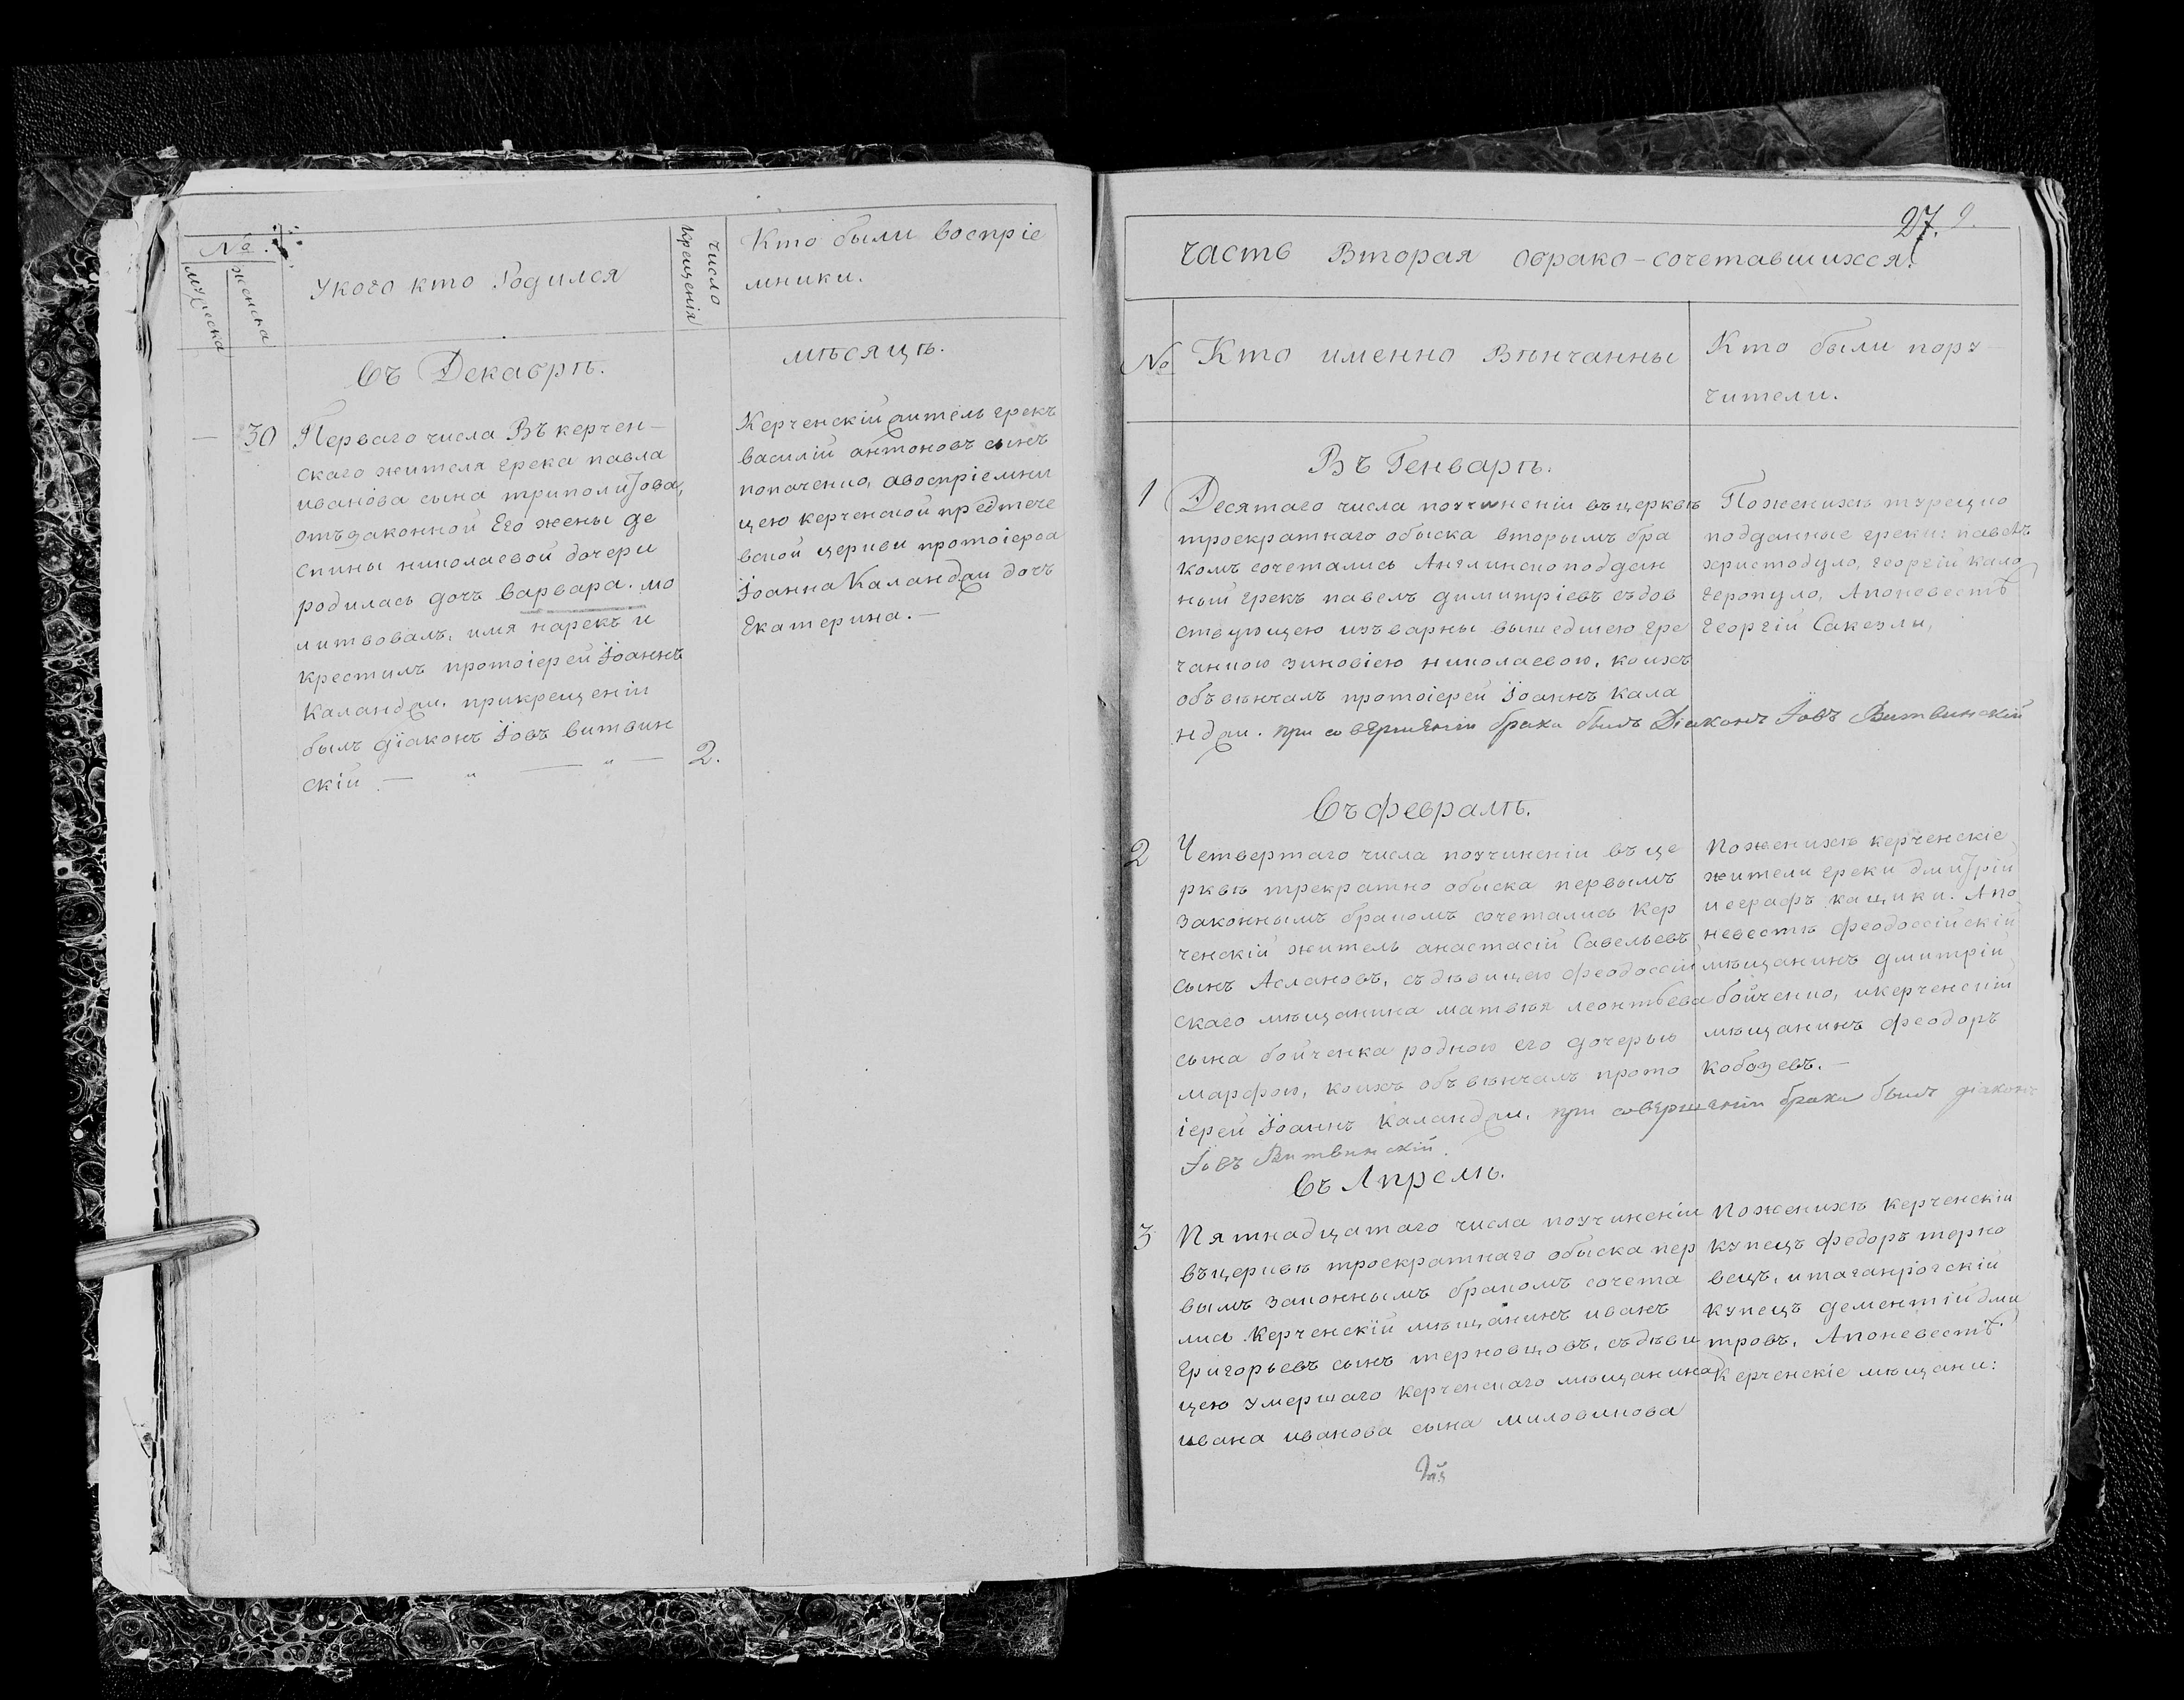 №.
мужеска
женска
укого кто Родился
число
крещенія
Кто были воспріе
мники.
Въ Декабрѣ.
мѣсяцѣ.
30
Перваго числа Въ керчен-
скаго жителя грека павла
иванова сына триполитова,
отъзаконной Его жены де
спины николаевой дочери
родилась дочь варвара. мо
литвовалъ, имя нарекъ и
крестилъ протоіерей Іоаннъ
каланджи. прикрещеніи
былъ діаконъ Іовъ витвин
скій — " — " —
2.
Керченскій житель грекъ
василій антоновъ сынъ
авоспріемни
цею керченской предтече
вской церкви протоіереа
Іоанна Каланджи дочь
Екатерина. —
27.
часть Вторая обрако-сочетавшихся.
№
Кто именно Вѣнчанны
Кто были пору
чители.
Въ Генварѣ.
1
Десятаго числа поучиненіи въцерквѣ
троекратнаго обыска вторымъ бра
комъ сочетались Англинскоподдан
ный грекъ павелъ димитріевъ съдов
ствующею изъварны вышедшею гре
чанкою зиновіею николаевою, коихъ
объвѣнчалъ протоіерей Іоаннъ кала
нджи. при совершеніи брака былъ Діаконъ Іовъ Витвинскій
Поженихѣ турецко
подданные греки: павелъ
христодуло, георгій кало
геропуло, Апоневестѣ
георгій Сакезли,
Въ февралѣ.
2
Четвертаго числа поучиненіи въце
рквѣ трекратно обыска первымъ
законнымъ бракомъ сочетались Кер
ченскій житель анастасій Савельевъ
сынъ Аслановъ, съдѣвицею феодоссій
скаго мѣщанина матвѣя леонтьева
сына бойченка родною его дочерью
марфою, коихъ объвѣнчалъ прото
іерей Іоаннъ Каланджи, при совершеніи брака былъ діаконъ
Іовъ Витвинскій.
Поженихѣ керченскіе
жители греки дмитріи
иеграфъ кацики. Апо
невестѣ феодоссійскій
мѣщанинъ дмитрій
бойченко, икерченскій
мѣщанинъ феодоръ
кобозевъ. —
Въ Апрелѣ.
3
Пятнадцатаго числа поучиненіи
въцерквѣ троекратнаго обыска пер
вымъ законнымъ бракомъ сочета
лись Керченскій мѣщанинъ иванъ
Григорьевъ сынъ терновцовъ, съдѣви
цею умершаго керченскаго мѣщанина
ивана иванова сына миловинова
Поженихѣ керченскіи
купецъ федоръ терно
вецъ, итаганрогскій
купецъ дементій дми
тровъ, Апоневестѣ
Керченскіе мѣщани: